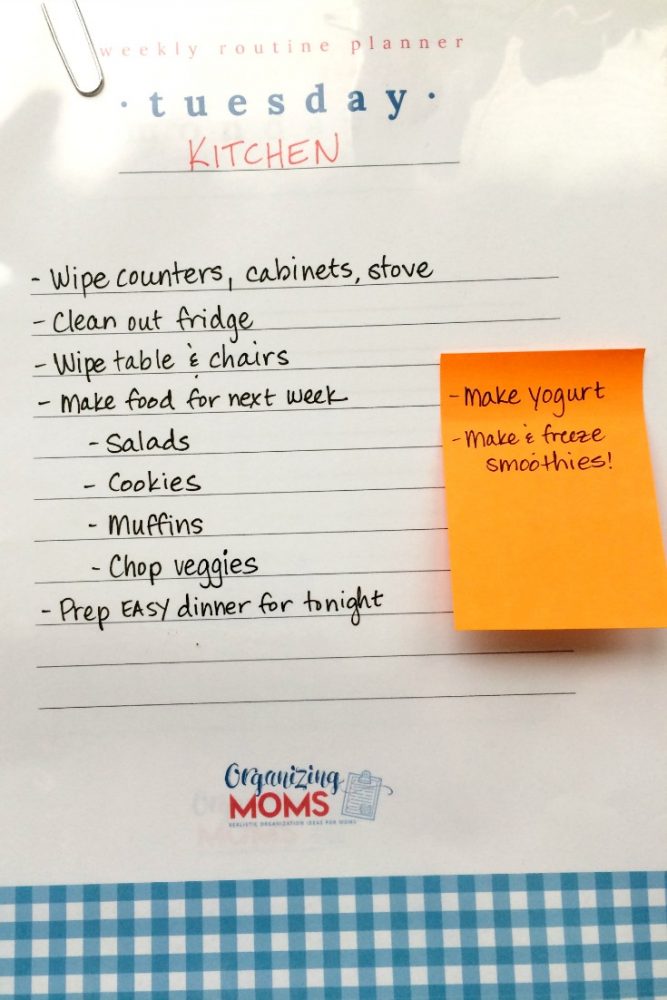 weekly routine planner
· tuesday ·
KITCHEN
- Wipe counters, cabinets, stove
- Clean out fridge
- Wipe table & chairs
- Make food for next week
- Salads
- Cookies
- Muffins
- Chop veggies
- Prep EASY dinner for tonight
- Make yogurt
- Make & freeze
smoothies!
Organizing
MOMS
REALISTIC ORGANIZATION IDEAS FOR MOMS